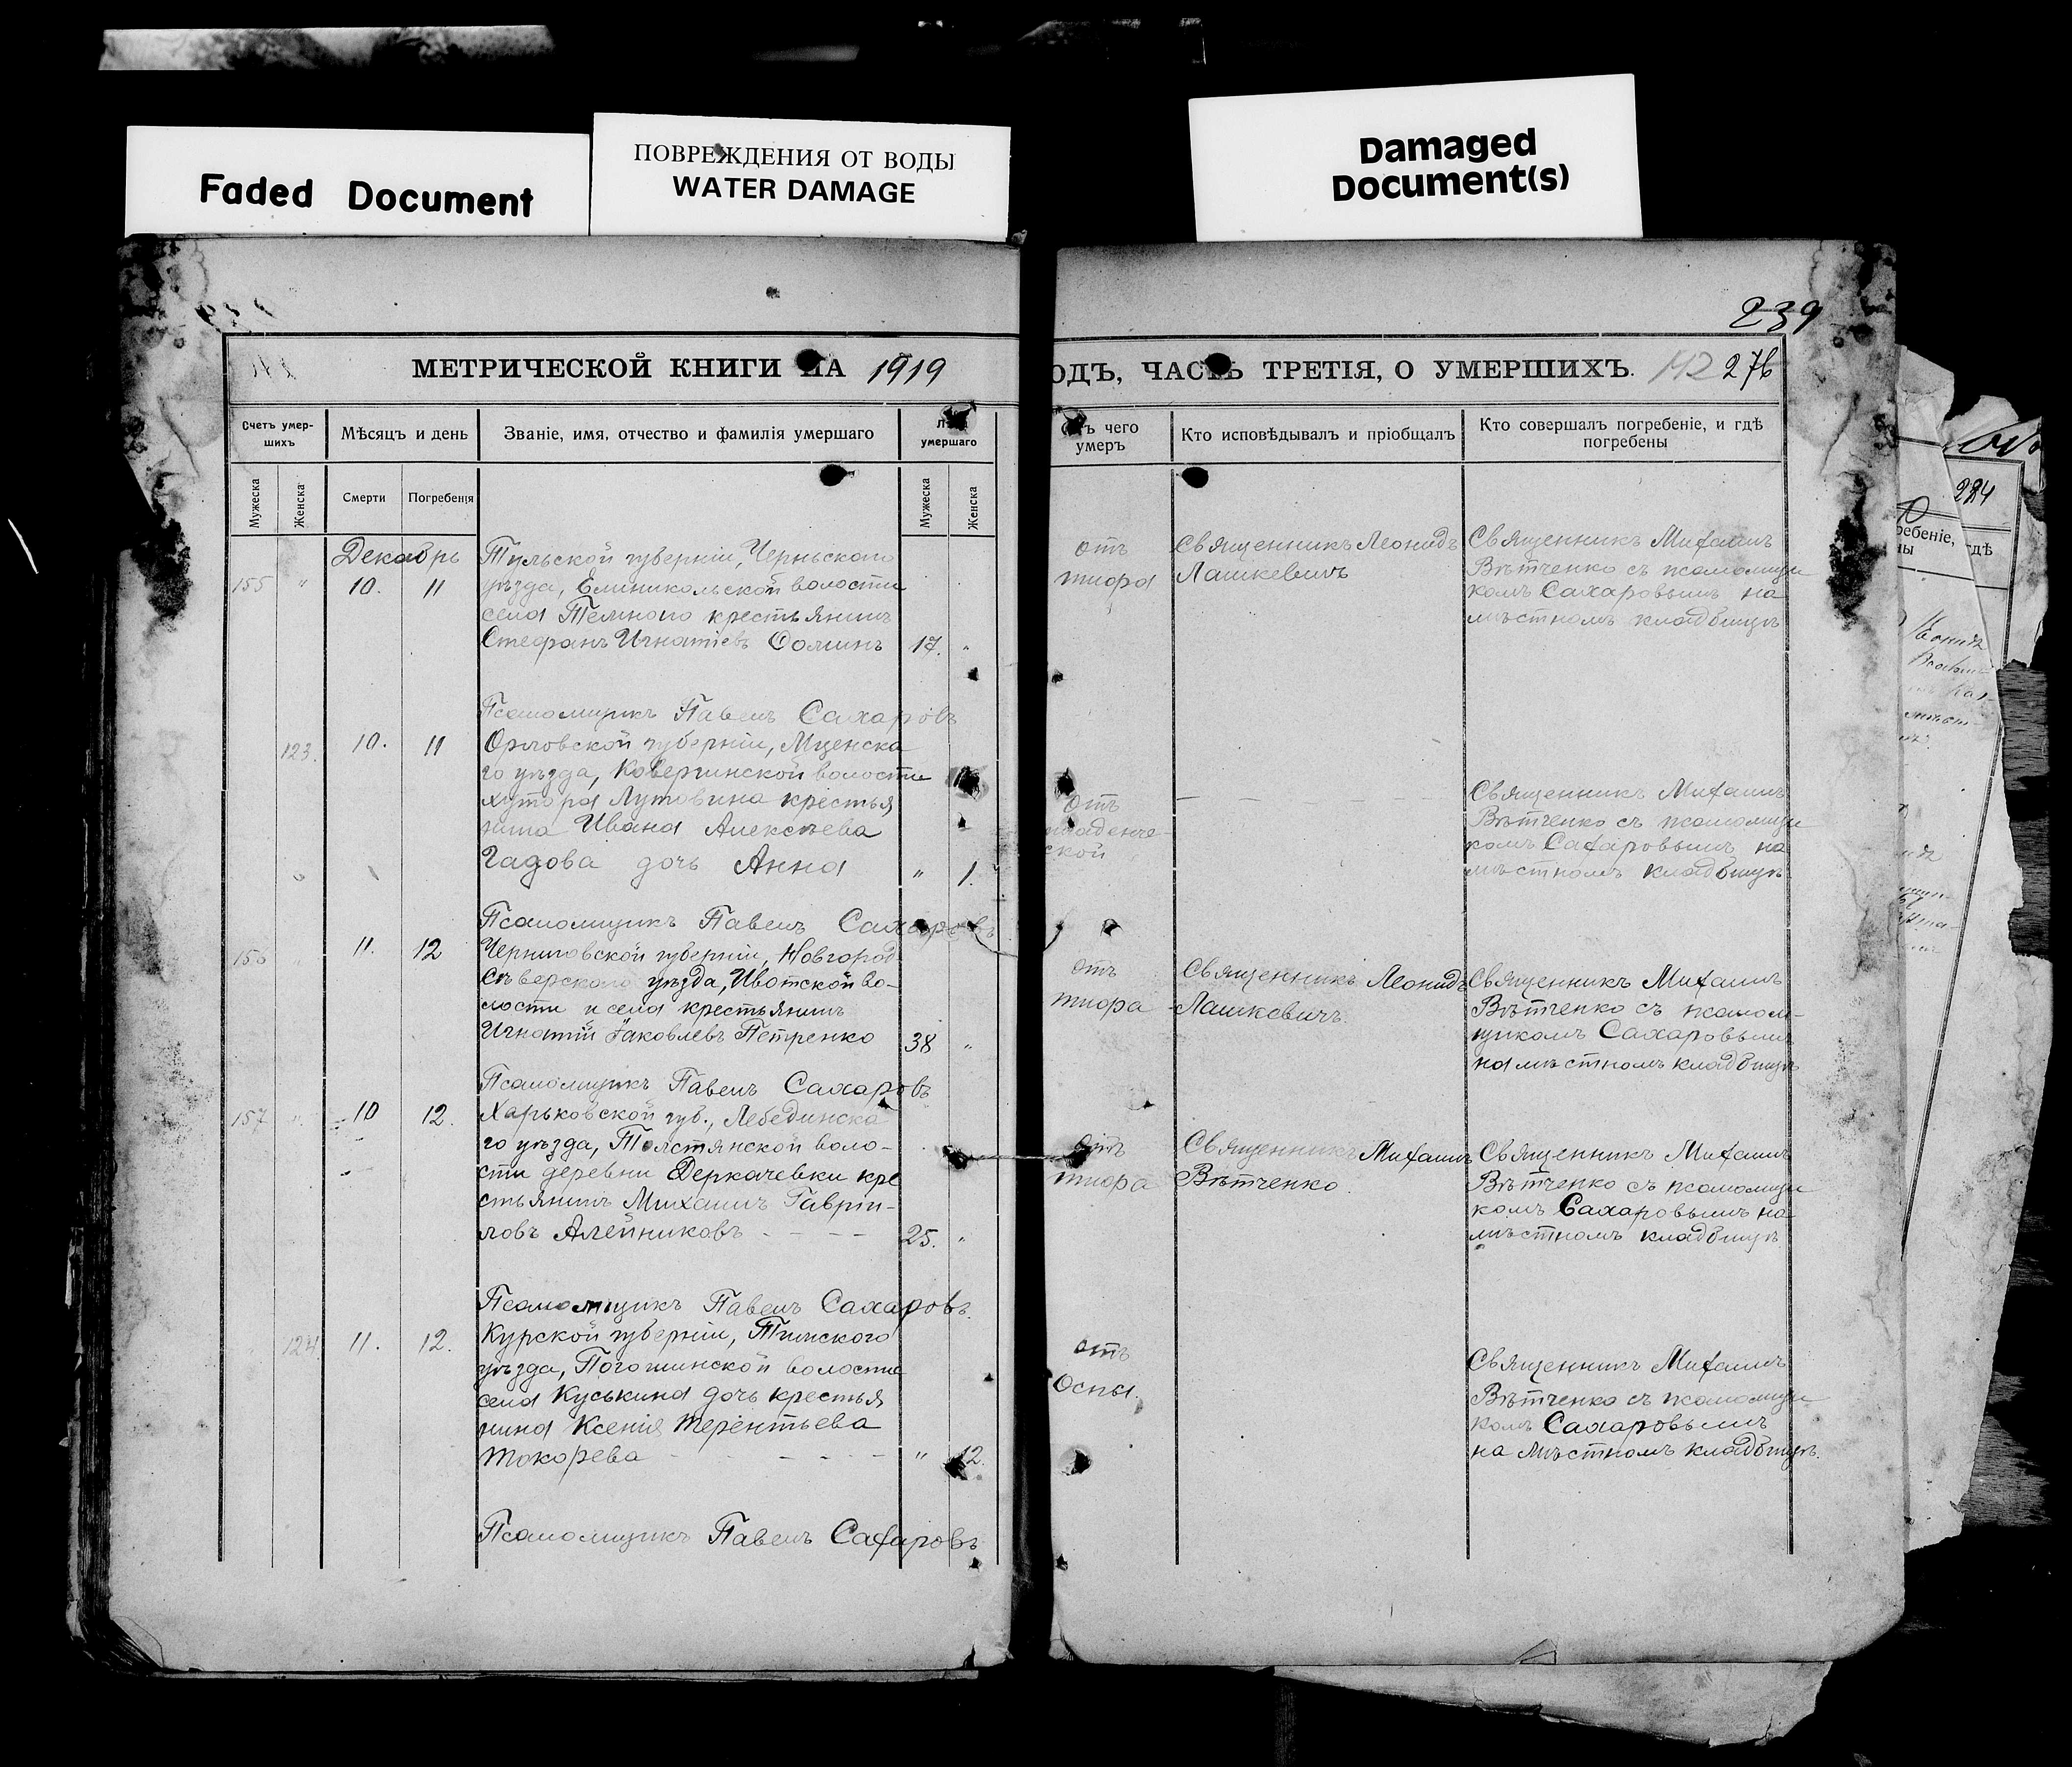 Faded Document
ПОВРЕЖДЕНИЯ ОТ ВОДЫ
WATER DAMAGE
Damaged
Document(s)
239
МЕТРИЧЕСКОЙ КНИГИ НА 1919
Счетъ умер-
шихъ
Мѣсяцъ и день
Званіе, имя, отчество и фамилія умершаго
умершаго
Мужеска
Женска
Смерти
Погребенія
Мужеска
Женска
Декабрь
155 " 10. 11
Тульской губерніи, Черньскаго
уѣзда, волости
села Темного крестьянинъ
Стефанъ Игнатіевъ Ѳоминъ 17. "
Псаломщикъ Павелъ Сахаровъ
123. 10. 11
Орловской губерніи, Мценска
го уѣзда, волости
хутора Лутовина крестья
нина Ивана Алексѣева
Гадова дочь Анна " 1.
Псаломщикъ Павелъ Сахаровъ
156 " 11. 12
Черниговской губерніи, Новгород
Сѣверскаго уѣзда, Ивотской во-
лости и села крестьянинъ
Игнатій Іаковлевъ Петренко 38 "
Псаломщикъ Павелъ Сахаровъ
157 " 10 12.
Харьковской губ., Лебединска
го уѣзда, Толстянской воло-
сти деревни Деркачевки кре
стьянинъ Михаилъ Гавріи-
ловъ Алейниковъ - - - - 25. "
Псаломщикъ Павелъ Сахаровъ.
124 11. 12.
Курской губерніи, Тимского
уѣзда, волости
села Куськина дочь крестья
нина Ксенія Терентьева
Токорева - - - - - " 12.
Псаломщикъ Павелъ Сахаровъ
ОДЪ, ЧАСТЬ ТРЕТІЯ, О УМЕРШИХЪ. 142 276
Отъ чего
умеръ
Кто исповѣдывалъ и пріобщалъ
Кто совершалъ погребеніе, и гдѣ
погребены
отъ
тифа
Священникъ Леонидъ
Лашкевичъ
Священникъ Михаилъ
Вѣтченко съ псаломщи
комъ Сахаровымъ на
мѣстномъ кладбищѣ
отъ
младенче-
ской
Священникъ Михаилъ
Вѣтченко съ псаломщи
комъ Сахаровымъ на
мѣстномъ кладбищѣ
отъ
тифа
Священникъ Леонидъ
Лашкевичъ.
Священникъ Михаилъ
Вѣтченко съ псалом-
щикомъ Сахаровымъ
на мѣстномъ кладбищѣ
отъ
тифа
Священникъ Михаилъ
Вѣтченко.
Священникъ Михаилъ
Вѣтченко съ псаломщи
комъ Сахаровымъ на
мѣстномъ кладбищѣ
отъ
Оспы.
Священникъ Михаилъ
Вѣтченко съ псаломщи
комъ Сахаровымъ
на мѣстномъ кладбищѣ.
284